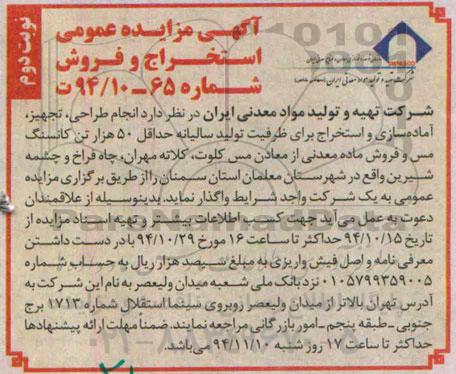 نوبت دوم
آگهی مزایده عمومی
استخراج و فروش
شماره ۶۵-۹۴/۱۰ت
IMPASCO
شرکت تهیه و تولید مواد معدنی ایران
شرکت تهیه و تولید مواد معدنی ایران در نظر دارد انجام طراحی، تجهیز،
آماده‌سازی و استخراج برای ظرفیت تولید سالیانه حداقل ۵۰ هزار تن کانسنگ
مس و فروش ماده معدنی از معادن مس کلوت، کلاته مهران، چاه فراخ و چشمه
شیرین واقع در شهرستان معلمان استان سمنان را از طریق برگزاری مزایده
عمومی به یک شرکت واجد شرایط واگذار نماید. بدینوسیله از علاقمندان
دعوت به عمل می‌آید جهت کسب اطلاعات بیشتر و تهیه اسناد مزایده از
تاریخ ۹۴/۱۰/۱۵ حداکثر تا ساعت ۱۶ مورخ ۹۴/۱۰/۲۹ با در دست داشتن
معرفی نامه و اصل فیش واریزی به مبلغ سیصد هزار ریال به حساب شماره
۰۱۰۵۷۹۹۳۵۹۰۰۵ نزد بانک ملی شعبه میدان ولیعصر به نام این شرکت به
آدرس تهران بالاتر از میدان ولیعصر روبروی سینما استقلال شماره ۱۷۱۳ برج
جنوبی -طبقه پنجم -امور بازرگانی مراجعه نمایند. ضمناً مهلت ارائه پیشنهادها
حداکثر تا ساعت ۱۷ روز شنبه ۹۴/۱۱/۱۰ می‌باشد.